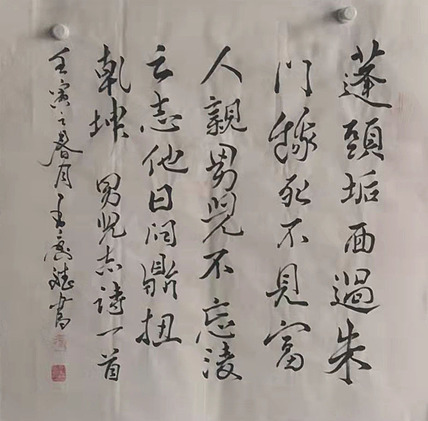 蓬頭垢面過朱
門獠死不見富
人親男兒不忘淩
云志他日问鼎扭
乾坤 男兒志詩一首
壬寅之春月王 斌書